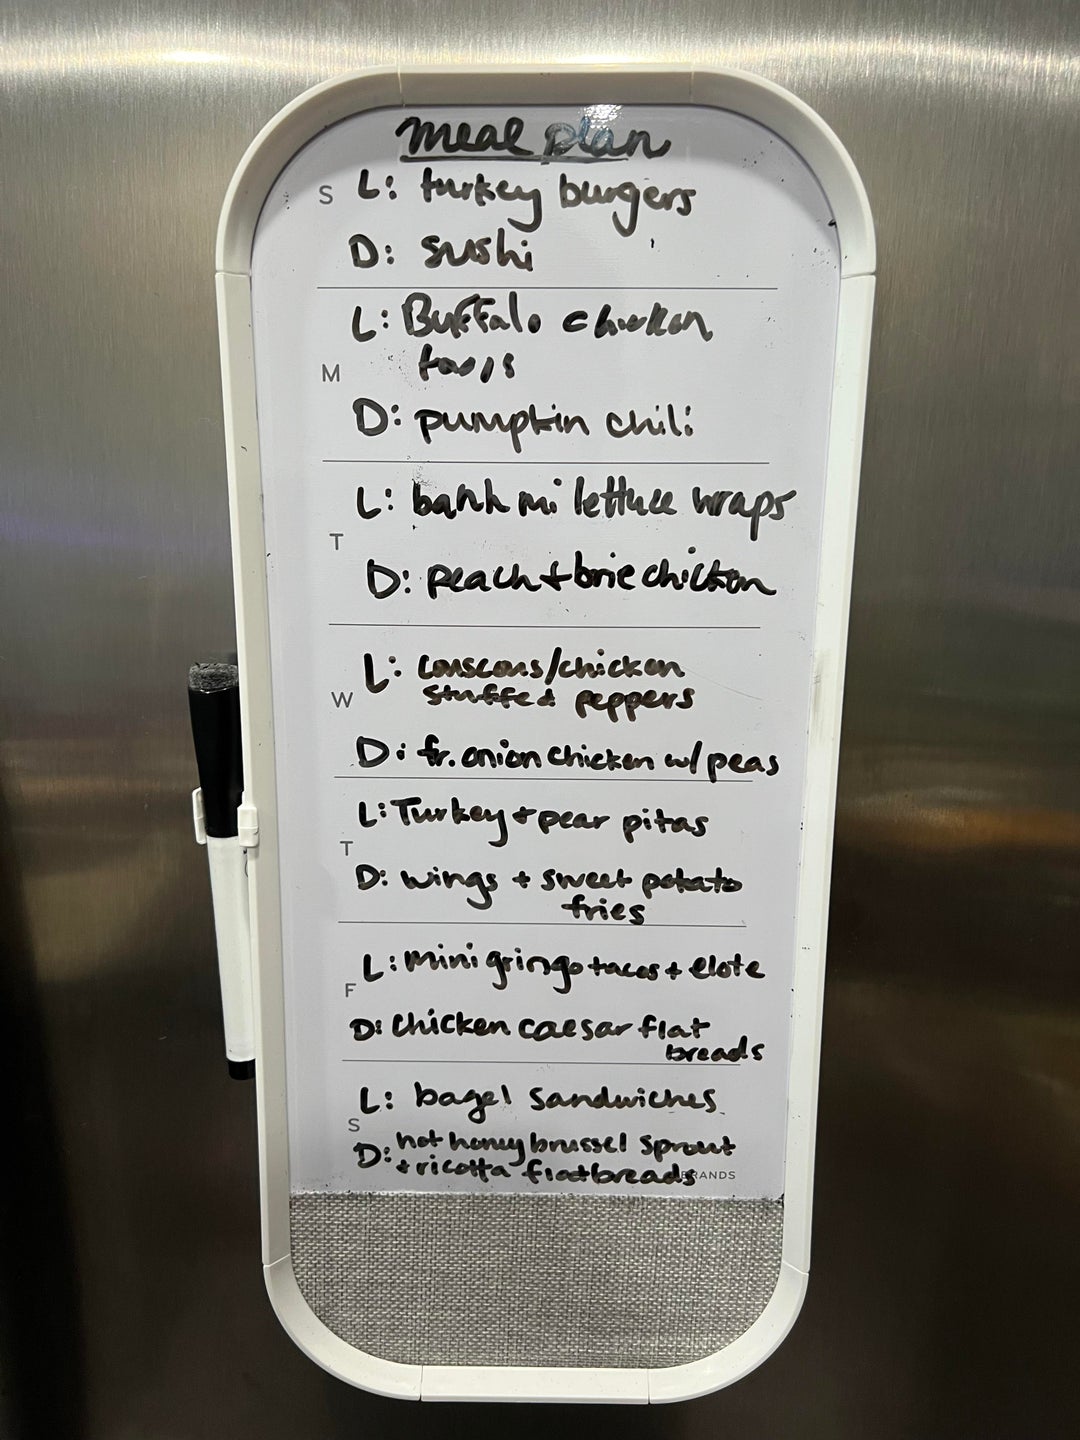 meal plan
S L: turkey burgers
D: sushi
L: Buffalo chicken
M
D: pumpkin chili
L: bahh mi lettuce wraps
T
D: peach + brie chicken
L: couscous/chicken
W stuffed peppers
D: fr. onion chicken w/ peas
L: Turkey + pear pitas
T
D: wings + sweet potato
fries
L: mini gringo tacos + elote
F
D: chicken caesar flat
breads
L: bagel sandwiches
S
D: hot honey brussel sprout
+ ricotta flatbreads